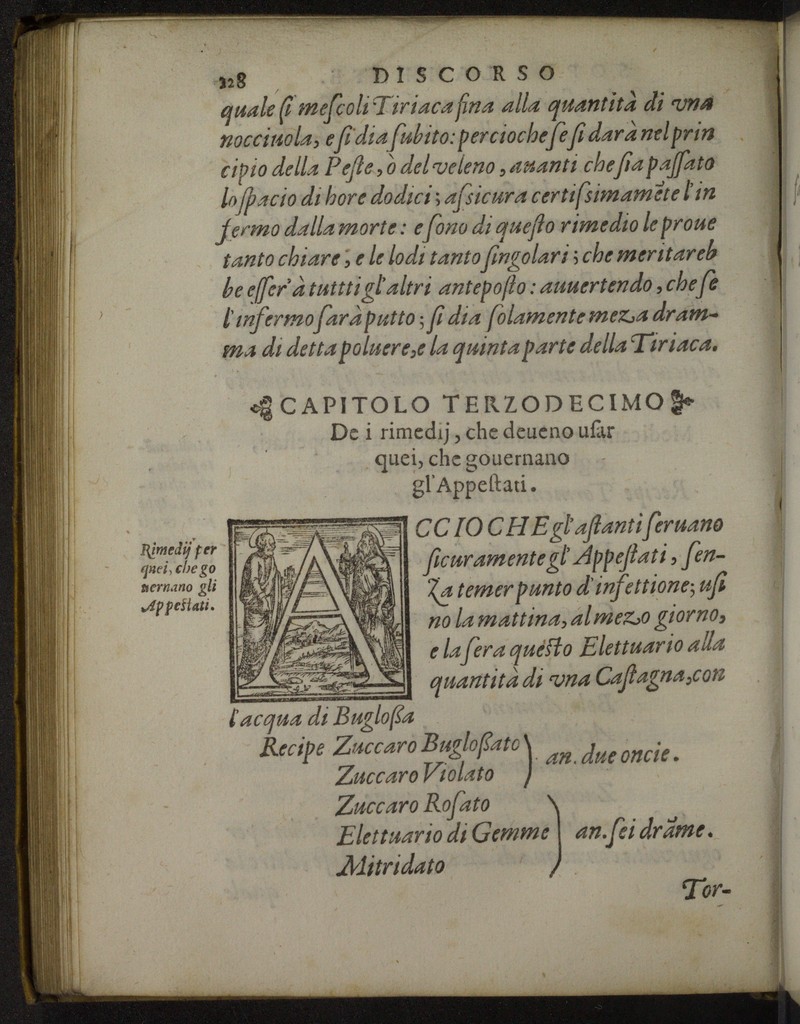 128 DISCORSO
quale ſi meſcoli Tiriaca fina alla quantità di vna
nocciuola, e ſi dia ſubito: perciocheſe ſi darà nel prin
cipio della Peſte, ò del veleno, auanti che ſia paſſato
lo ſpacio di hore dodici; aſsicura certiſsimamẽte l'in
fermo dalla morte: e ſono di queſto rimedio le proue
tanto chiare, e le lodi tanto ſingolari; che meritareb
be eſſer' à tuttti gl'altri antepoſto: auuertendo, che ſe
l'infermo ſarà putto; ſi dia ſolamente meza dram-
ma di detta poluere, e la quinta parte della Tiriaca.
CAPITOLO TERZODECIMO
De i rimedij, che deueno uſar
quei, che gouernano
gl'Appeſtati.
Rimedij per
quei, che go
uernano gli
Appeſtati.
ACCIOCHE gl'aſtanti ſeruano
ſicuramente gl'Appeſtati, ſen-
za temer punto d'infettione; uſi
no la mattina, al mezo giorno,
e la ſera queſto Elettuario alla
quantità di vna Caſtagna, con
l'acqua di Bugloſsa
Recipe Zuccaro Bugloſsato
Zuccaro Violato } an. due oncie.
Zuccaro Roſato
Elettuario di Gemme } an. ſei drãme.
Mitridato
Tor-